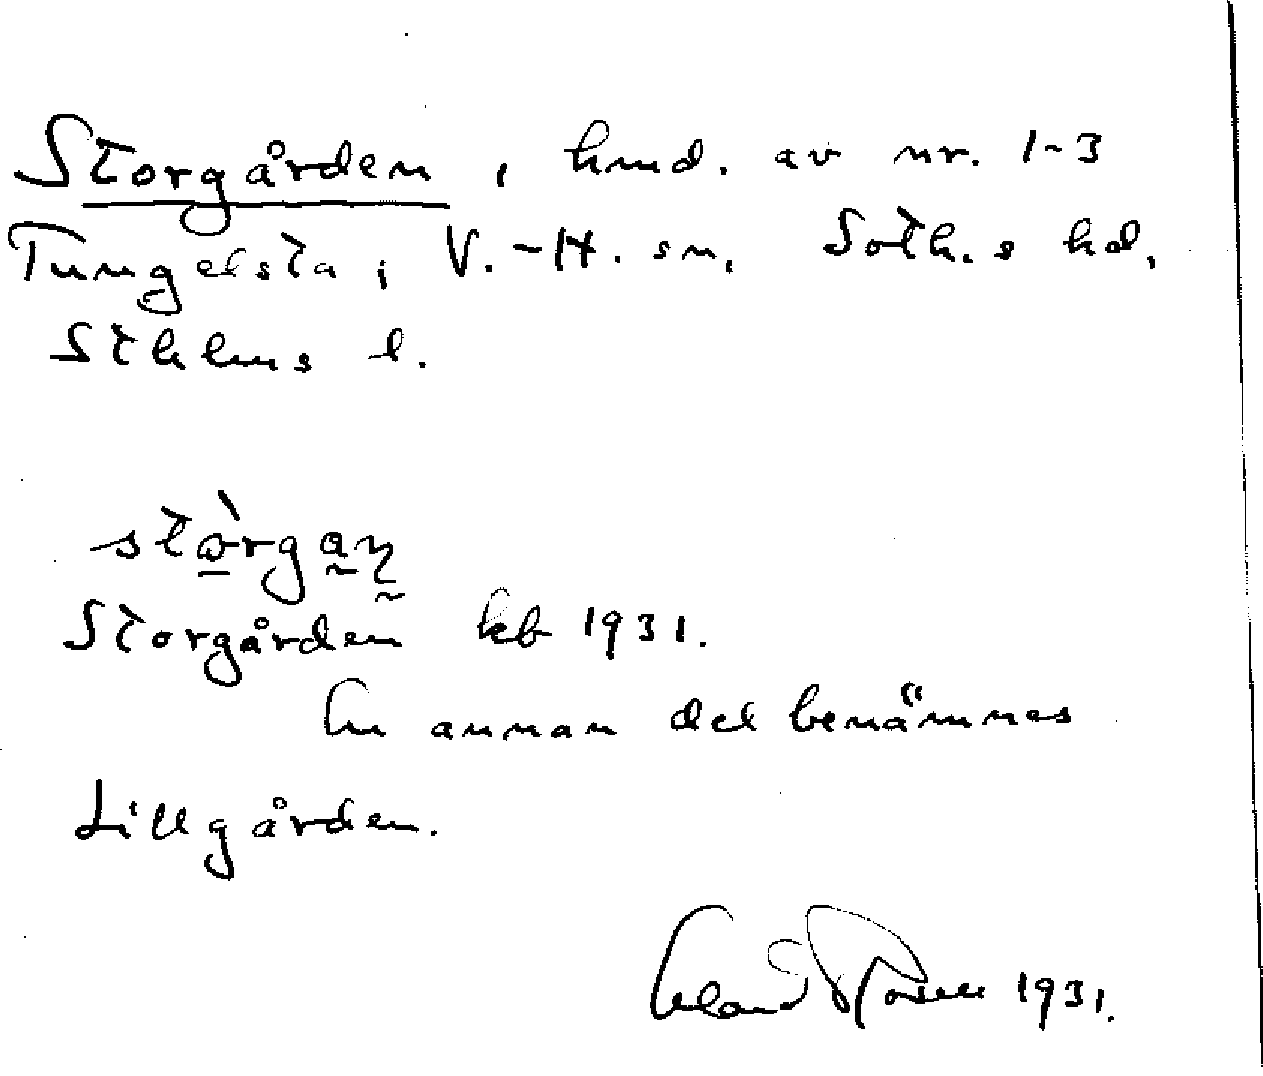 Storgården, hmd. av nr. 1-3
Tungelsta, V.-H. sn, Soth.s hd,
Sthlms l.
stòrgan
Storgården kb 1931.
En annan del benämnes
Lillgården.
1931.